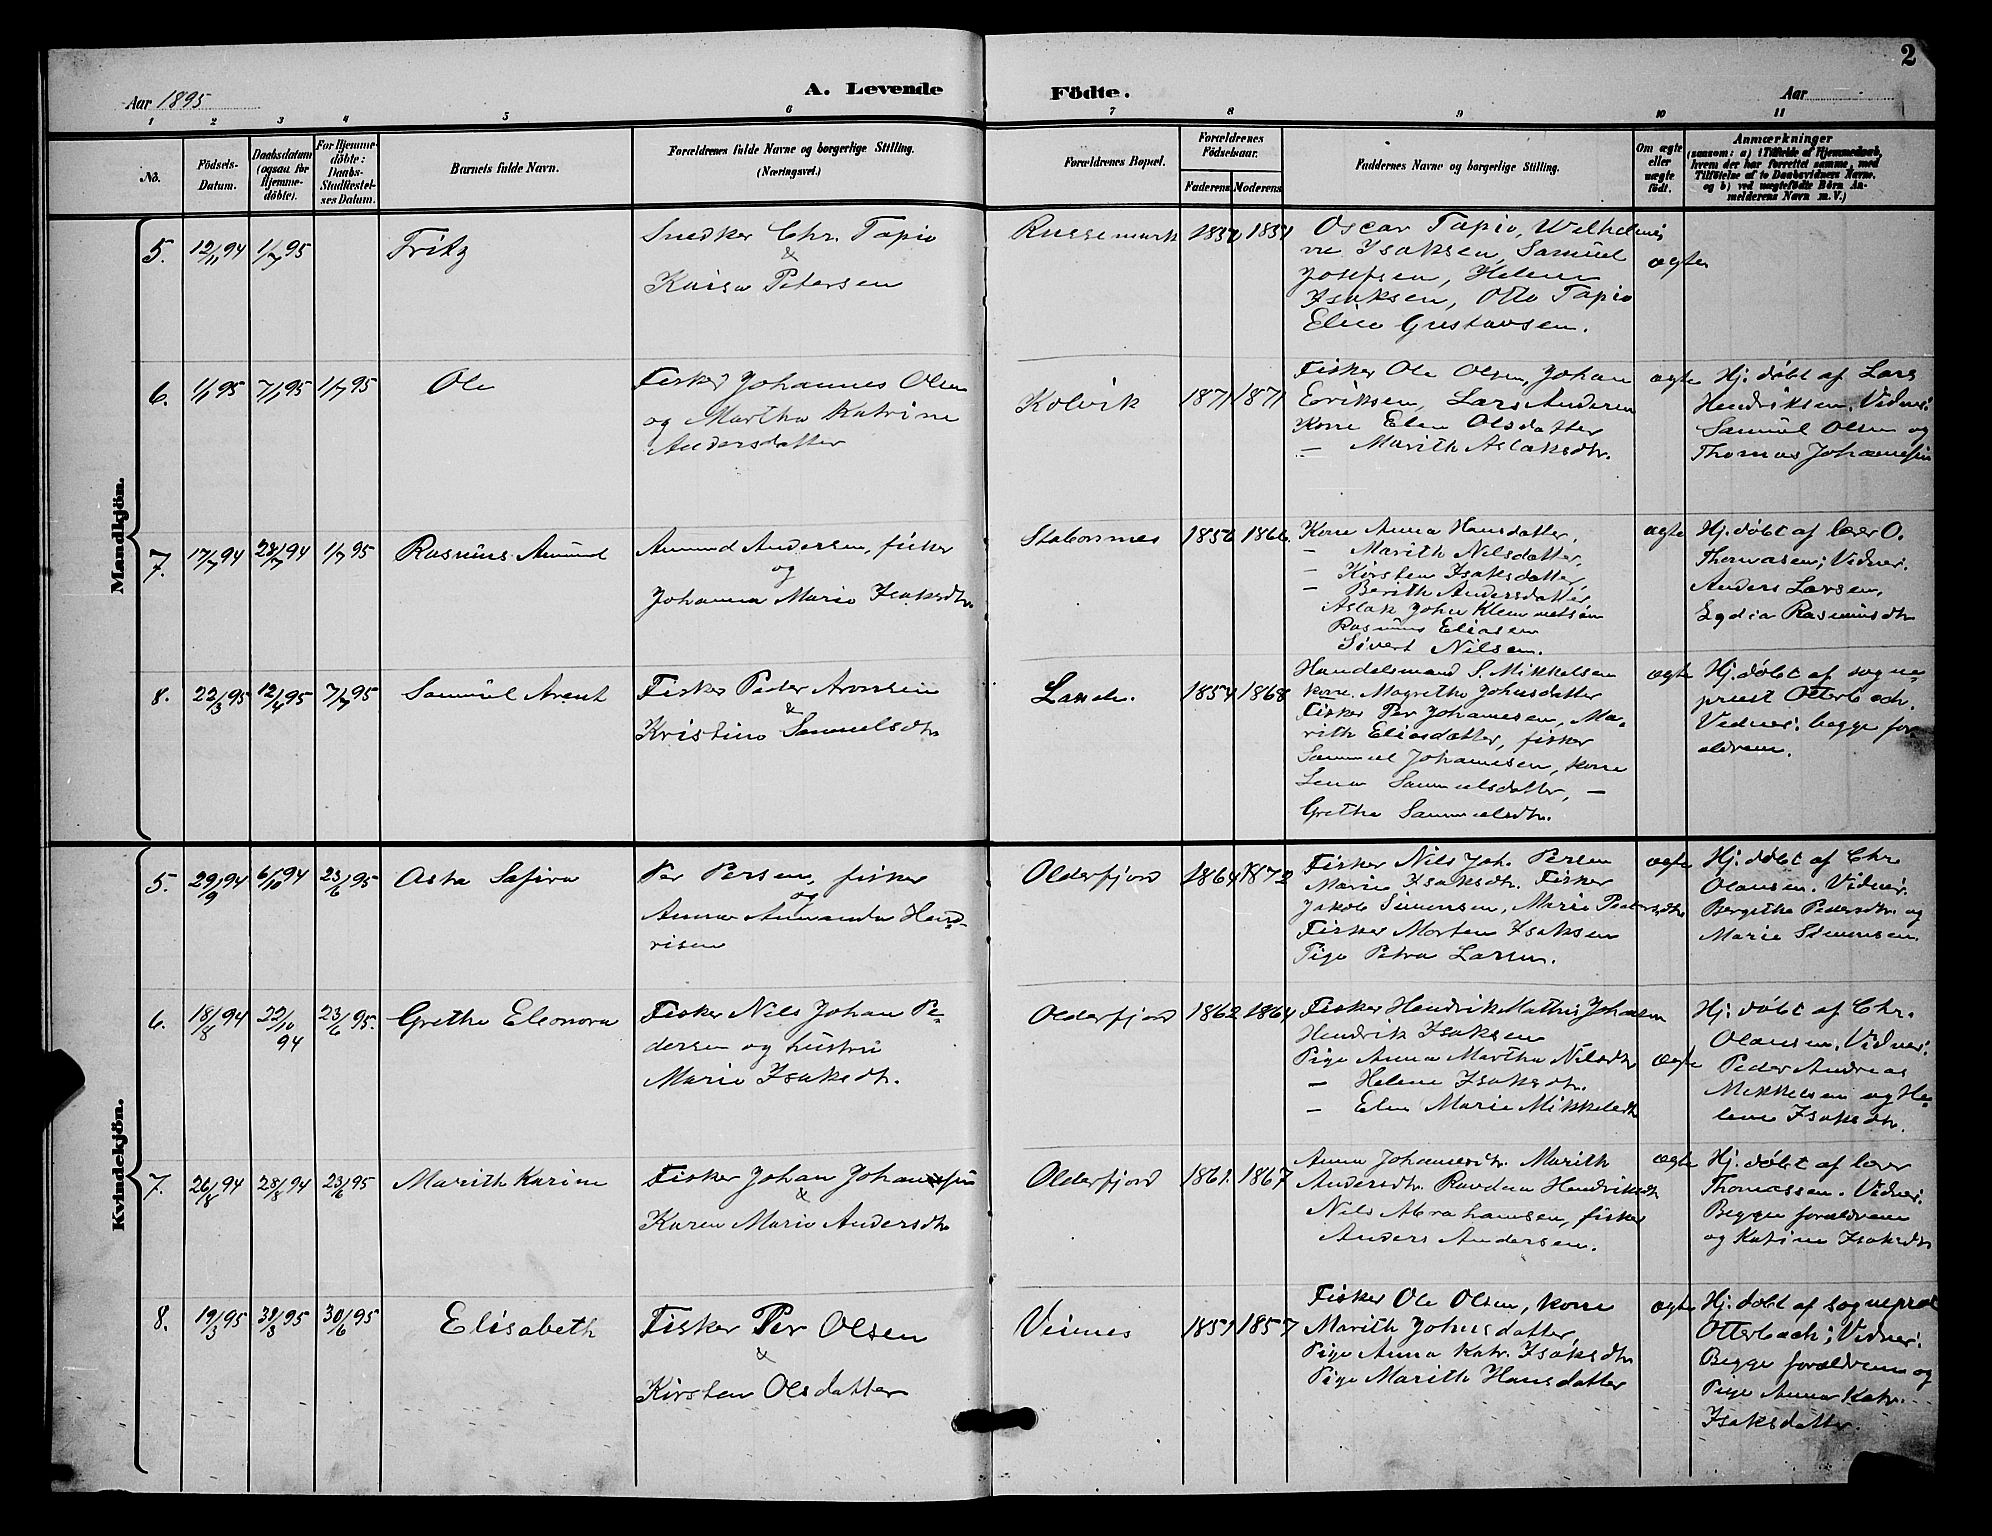 2
Aar 1895
A. Levende Födte.
Aar
1 2 3 4 5 6 7 8 9 10 11
No.
Födsels-
Datum.
Daabsdatum
(ogsaa for
Hjemme-
döbte).
For Hjemme-
döbte:
Daabs-
Stadfæstel-
ses Datum.
Barnets fulde Navn.
Forældrenes fulde Navne og borgerlige Stilling.
(Næringsvei.)
Forældrenes Bopæl.
Forældrenes
Födselsaar.
Faderens Moderens
Faddernes Navne og borgerlige Stilling.
Om ægte
eller
uægte
födt.
Anmærkninger
(saasom: a) i Tilfælde af Hjemmedaab,
hvem der har forrettet samme, med
Tilföielse af to Daabsvidners Navne.
og b) ved uægtefödte Börn An-
melderens Navn m. V.)
Mandkjön.
5. 12/11 94 1/7 95
Fritz
Snedker Chr. Tapio
&
Kaisa Petersen
Russemark
1851
Oscar Tapio, Wilhelmi
ne Isaksen, Samuel
Josefsen, Helene
Isaksen, Otto Tapio
Elisa Gustavsen.
ægte
6. 1/1 95 7/1 95 1/7 95
Ole
Fisker Johannes Olsen
og Martha Katrine
Andersdatter
Kolvik
1871 1871
Fisker Ole Olsen, Johan
Eriksen, Lars Andersen
Kone Elen Olsdatter
— Marith Aslaksdtr.
ægte
Hj. döbt af Lars
Hendriksen. Vidner:
Samuel Olsen og
Thomas Johannesen
7. 17/7 94 28/7 94 1/7 95
Rasmus Amund
Amund Andersen, fisker
og
Johanna Marie Isaksdtr.
Stabornes
1856 1866.
Kone Anna Hansdatter.
— Marith Nilsdatter,
— Kirsten Isaksdatter,
— Berith Andersdatter
Aslak John Klemmetsen
Rasmus Eliasen
Sivert Nilsen.
ægte
Hj. döbt af lærer O.
Thomasen; Vidner.
Anders Larsen,
Lydia Rasmusdtr
8. 22/3 95 12/4 95 7/7 95
Samuel Arent
Fisker Peder Aronsen
&
Kristine Samuelsdtr
1854 1868
Handelsmand S. Mikkelsen
kone Magrethe Johnsdatter
Fisker Per Johannesen, Ma-
rith Eliasdatter, fisker
Samuel Johannesen, kone
Lena Sammelsdatter, —
Grethe Sammelsdtr.
ægte
Hj. döbt af sogne-
prest Otterbech.
Vidner: begge for-
ældrene.
Kvindekjön.
5. 29/9 94 6/10 94 23/6 95
Asta Safira
Per Persen, fisker
og
Anna Amanda Hend-
risen
Olderfjord
1864 1872
Fisker Nils Joh. Persen
Marie Isaksdtr. Fisker
Jakob Simonsen, Marie Pedersdtr
Fisker Morten Isaksen
Pige Petra Larsen.
ægte
Hj. döbt af Chr.
Olausen. Vidner.
Bergitha Pedersdtr. og
Marie Simonsen
6. 18/8 94 22/10 94 23/6 95.
Grethe Eleonora
Fisker Nils Johan Pe-
dersen og hustru
Marie Isaksdtr.
Olderfjord
1862 1864
Fisker Hendrik Mathis Johansen
Hendrik Isaksen
Pige Anna Martha Nilsdtr
— Helene Isaksdtr.
— Elen Marie Mikkelsdtr
ægte
Hj. döbt af Chr.
Olausen. Vidner:
Peder Andreas
Mikkelsen og He-
lene Isaksdtr.
7. 26/8 94 28/8 94 23/6 95
Marith Karine
Fisker Johan Johannesen
&
Karen Marie Andersdtr
Olderfjord
1861. 1867
Anna Johannesdtr. Marith
Andersdtr. Ravdna Hendriksdtr
Nils Abrahamsen, fisker
Anders Andersen.
ægte
Hj. döbt af lærer
Thomassen. Vidner:
Begge forældrene
og Katrine Isaksdtr
8. 19/3 95 31/3 95 30/6 95
Elisabeth
Fisker Per Olsen
&
Kirsten Olsdatter
Veines
1851 1857
Fisker Ole Olsen, kone
Marith Johnsdatter,
Pige Anna Katr. Isaksdtr
Pige Marith Hansdatter
ægte
Hj. döbt af sogneprest
Otterbech; Vidner:
Begge forældrene og
Pige Anna Katr.
Isaksdatter.